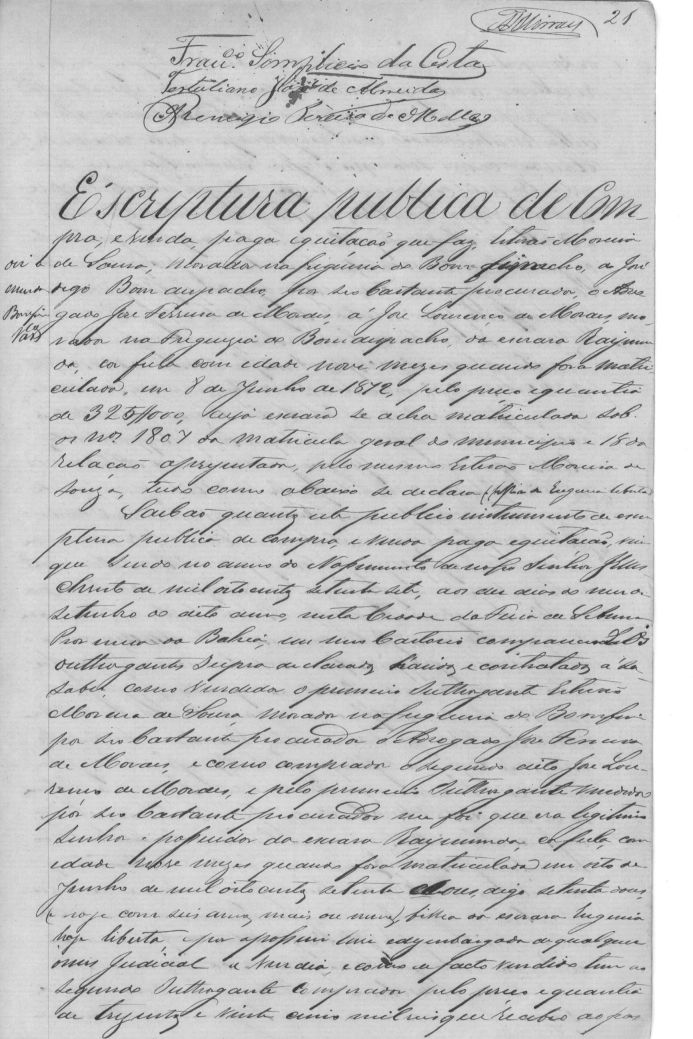 21
Franc.co Simplicio da Costa
Tertuliano José de Almeida
Pereira de Mello
Escriptura publica de Com-
pra, e venda, paga e quitação que faz, Estevão Moreira
de Sousa, morador na freguesia do Bom despacho, digo
digo Bom despacho, por seo bastante procurador, o Advo-
gado José Ferreira de Moraes, á José Lourenço de Moraes, mo-
rador na Freguezia do Bom despacho, da escrava Raymun-
da, cor fula com idade nove mezes quando fora matri-
culada, em 8 de Junho de 1872, pelo preço e quantia
de 325//000, cuja escrava se acha matriculada sob
os nos 1807 da matricula geral do municipio e 18 da
relação apresentada, pelo mesmo Estevão Moreira de
Souza, tudo como abaixo se declara (filha de Eugenia liberta)
Saibão quantos este publico instrumento de escri-
ptura publica de compra, e venda paga e quitação, vi-
que sendo no anno do Nascimento de nosso Senhor Jesus
Christo de mil oito centos setenta sete, aos dez dias do mez de
setembro do dito anno, nesta Cidade da Feira de Santanna
Provincia da Bahia, em meu Cartorio comparecerão os
outhorgantes supra declarados havidos e contratados á
saber como vendedor o primeiro outhorgante Estevão
Moreira de Sousa morador na freguesia do Bomfim
por seo bastante procurador o Advogado José Ferreira
de Moraes, e como comprador o segundo dito José Lou-
renço de Moraes, e pelo primeiro outhorgante vendedor
por seo bastante procurador me foi que era legitimo
senhor e possuidor da escrava Raymunda cor fula, com
idade nove mezes quando fora matriculada em oito de
Junho de mil oito centos setenta dous, digo setenta dous,
(e hoje com seis annos mais ou menos) filha da escrava Eugenia
hoje liberta e por a possuir livre e desembargada de qualquer
onus Judicial a vendia, e como de facto vendido tem ao
segundo outhorgante comprador pelo preço e quantia
de trezentos e vinte cinco mil reis que recebio ao pas